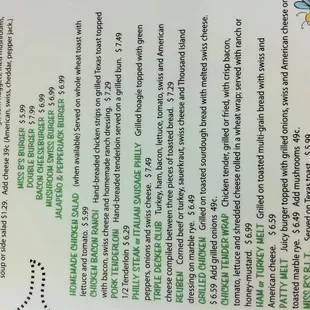 soup or side salad $1.29. Add cheese 39¢ (American, swiss, cheddar, pepper jack.)
MISS B'S BURGER $ 5.99
DOUBLE BURGER $ 7.99
BACON CHEESEBURGER $ 6.99
MUSHROOM SWISS BURGER $ 6.99
JALAPEÑO & PEPPERJACK BURGER $6.99
HOMEMADE CHICKEN SALAD (when available) Served on whole wheat toast with
lettuce and tomato. $ 5.99
CHICKEN BACON RANCH Hand-breaded chicken strips on grilled Texas toast topped
with bacon, swiss cheese and homemade ranch dressing. $ 7.29
PORK TENDERLOIN Hand-breaded tenderloin served on a grilled bun. $ 7.49
1/2 Tenderloin $ 6.29
PHILLY STEAK or ITALIAN SAUSAGE PHILLY Grilled hoagie topped with green
peppers, onions and swiss cheese. $ 7.49
TRIPLE DECKER CLUB Turkey, ham, bacon, lettuce, tomato, swiss and American
cheese compiled between three pieces of toasted bread. $ 7.29
REUBEN Corned beef or turkey, sauerkraut, swiss cheese and Thousand Island
dressing on marble rye. $ 6.49
GRILLED CHICKEN Grilled on toasted sourdough bread with melted swiss cheese.
$ 6.59 Add grilled onions 49¢.
CHICKEN TENDER WRAP Chicken tender, grilled or fried, with crisp bacon,
tomato, lettuce and shredded cheese rolled in a wheat wrap, served with ranch or
honey-mustard. $ 6.99
HAM or TURKEY MELT Grilled on toasted multi-grain bread with swiss and
American cheese. $ 6.59
PATTY MELT Juicy burger topped with grilled onions, swiss and American cheese on
toasted marble rye. $ 6.49 Add mushrooms 49¢.